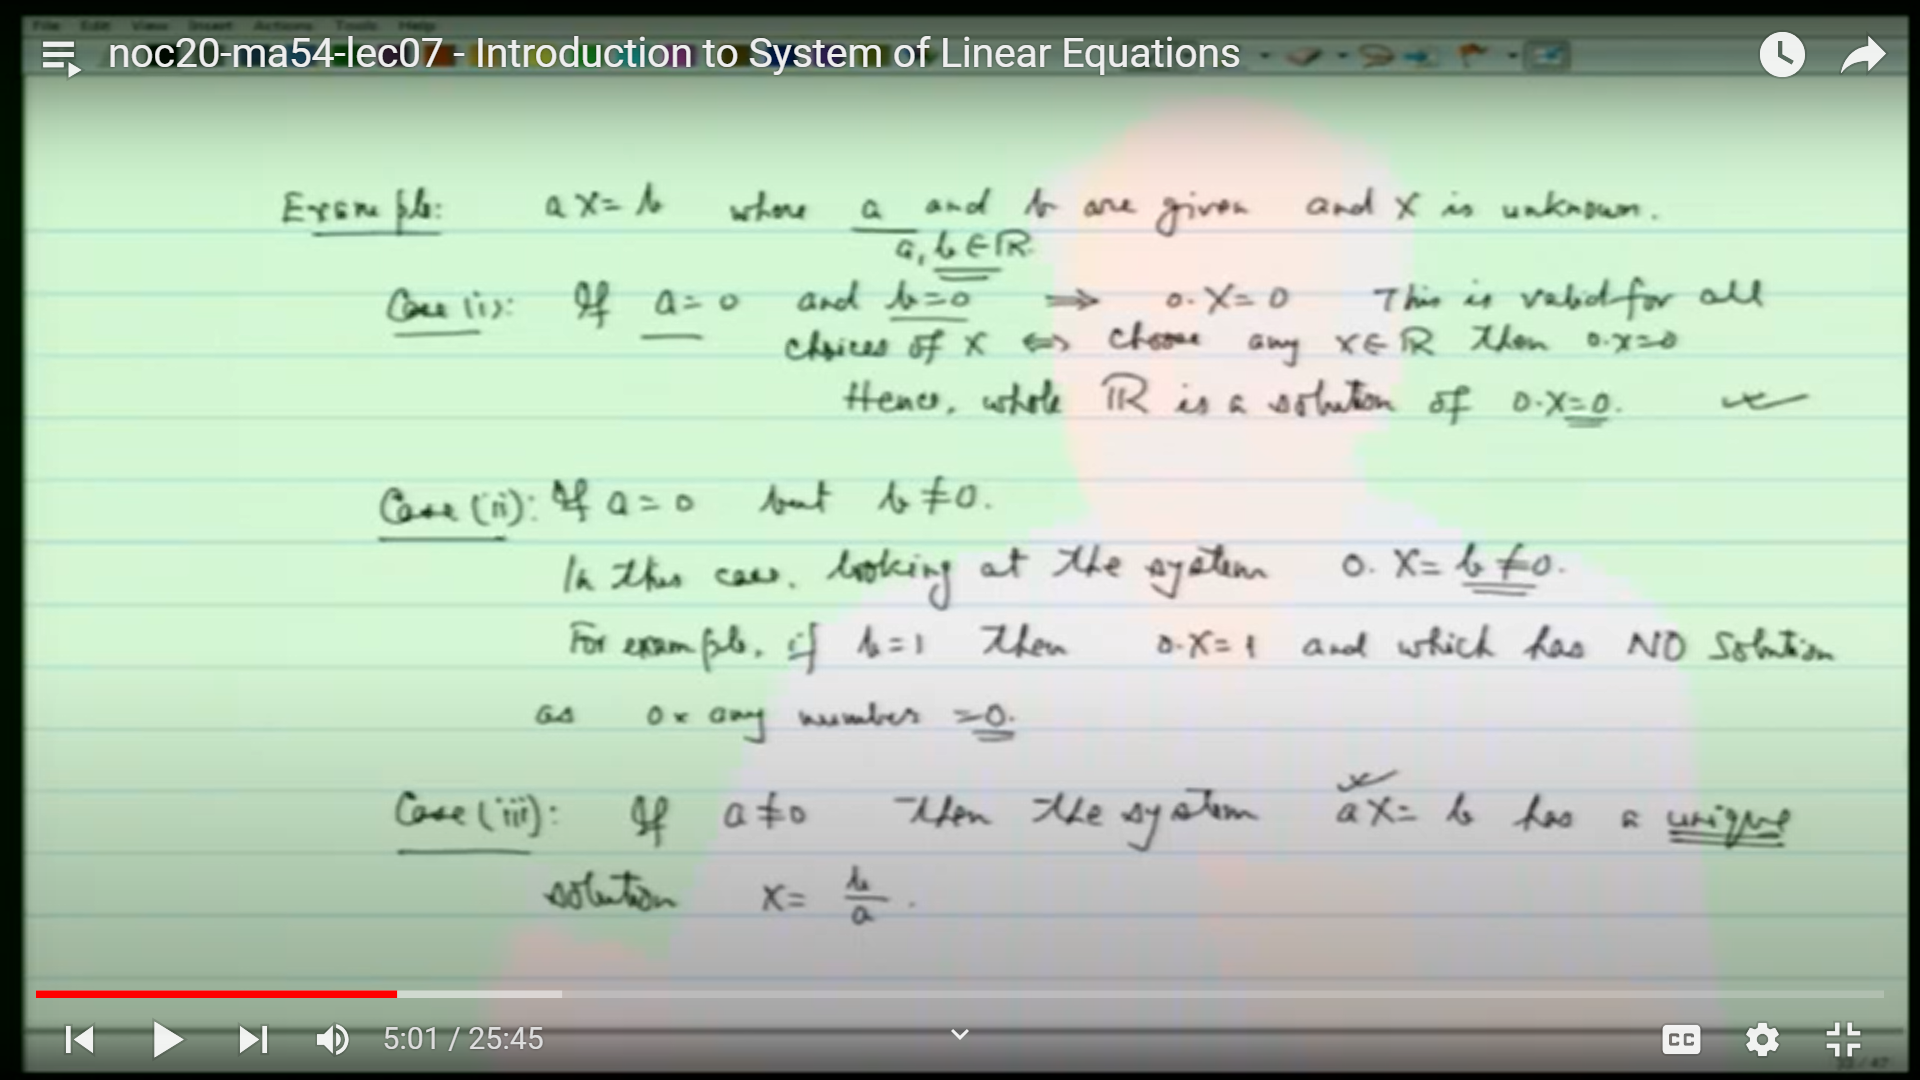 File Edit View Insert Actions Tools Help
noc20-ma54-lec07 - Introduction to System of Linear Equations
Example: aX=b where a and b are given and X is unknown.
a, b∈ℝ
Case (i): If a=0 and b=0 ⇒ 0·X=0 This is valid for all
choices of X ⇔ choose any x∈ℝ then 0·x=0
Hence, whole ℝ is a solution of 0·X=0.
Case (ii): If a=0 but b≠0.
In this case, looking at the system 0·X=b≠0.
For example, if b=1 then 0·X=1 and which has NO solution
as 0× any number =0.
Case (iii): If a≠0 then the system aX=b has a unique
solution X=b/a.
5:01 / 25:45
CC